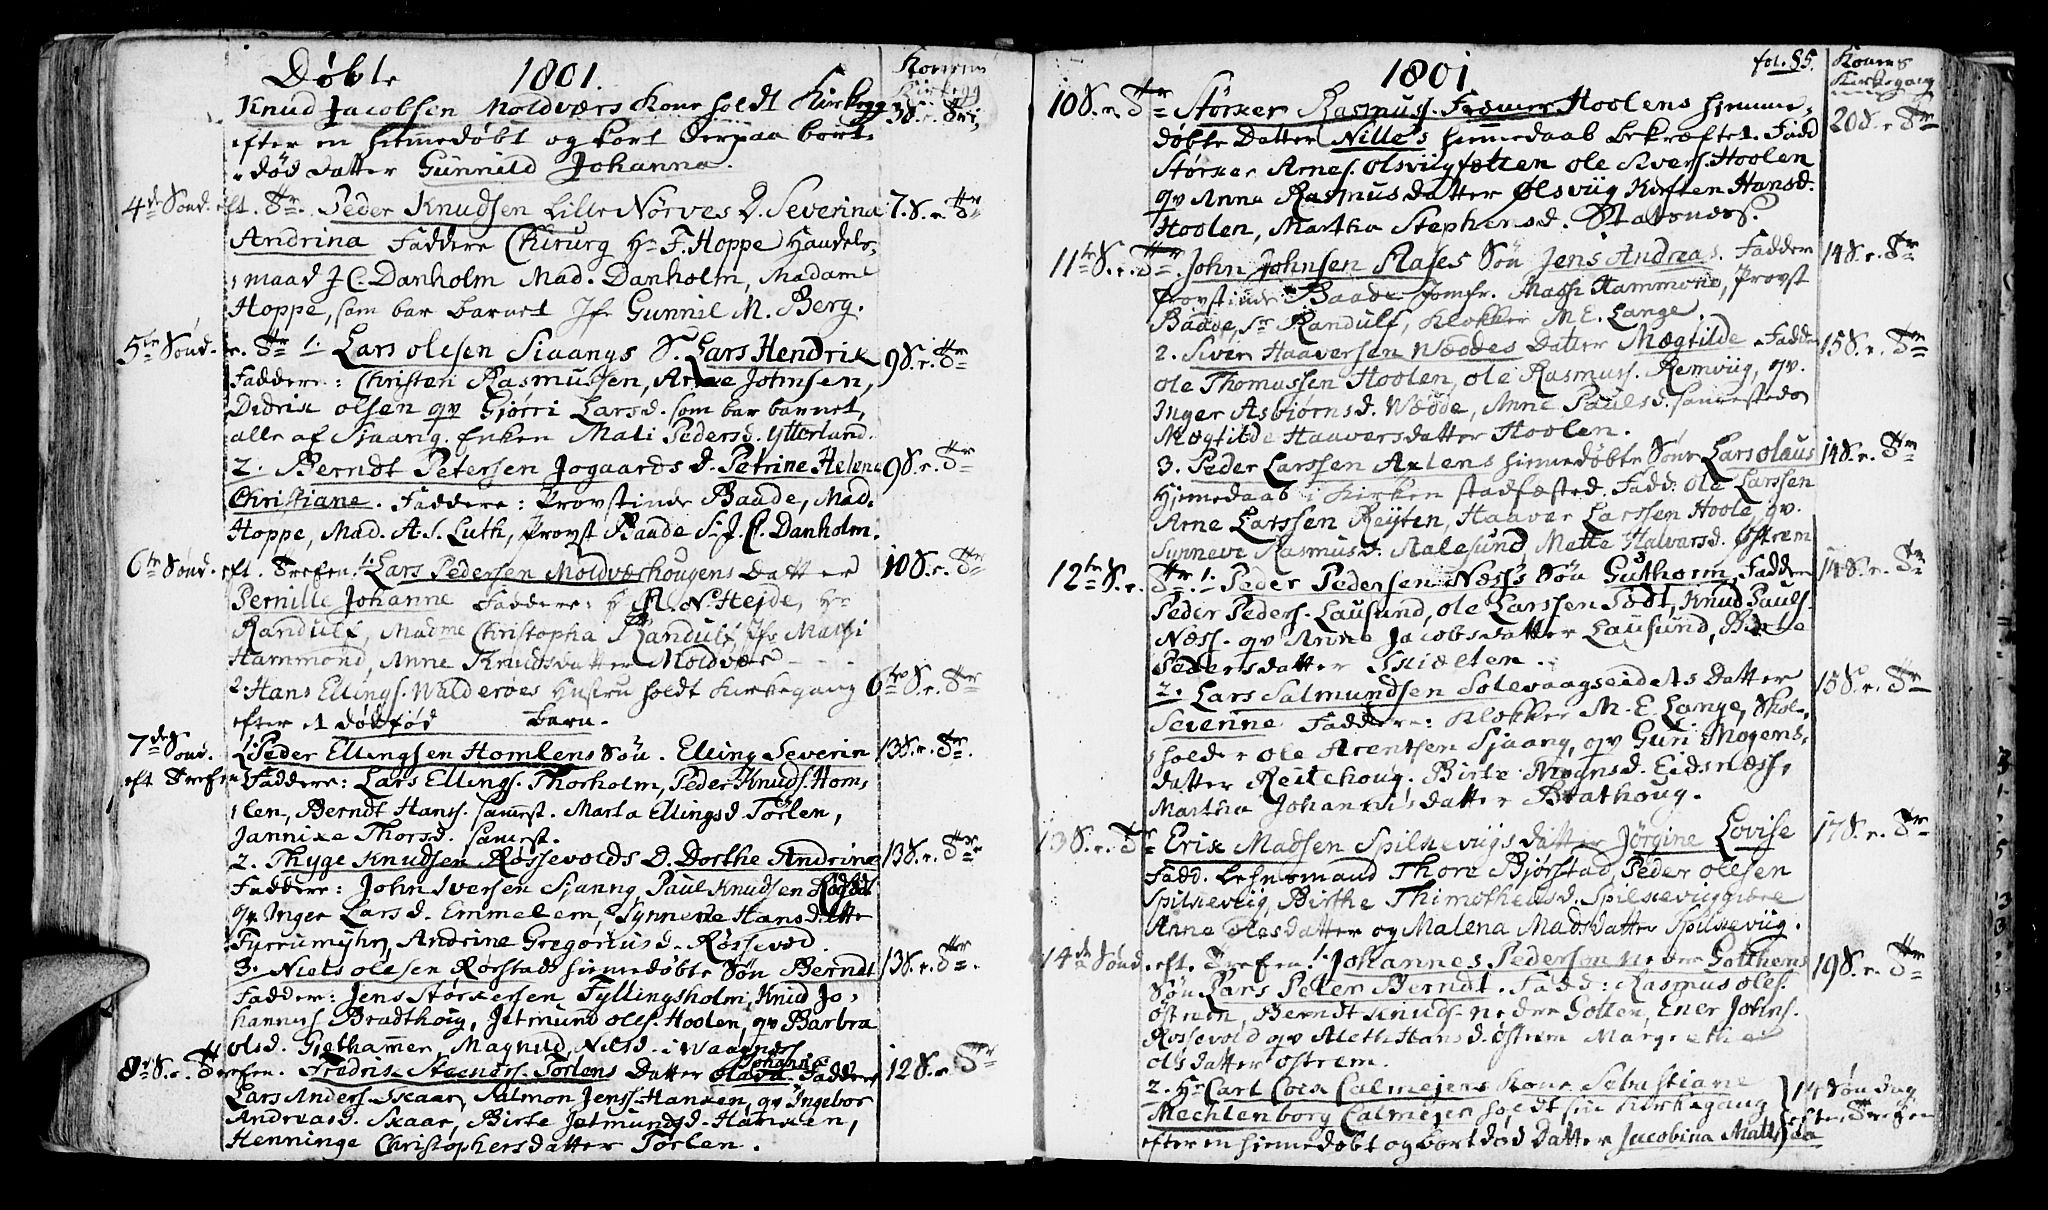 Døbte 1801.
Konens Kirkegg
Knud Jacobsen Moldværs Kone holdt Kirkegg 3 S. e. Tri,
efter en hiemedøbt og kort derpaa bort-
død datter Gunnild Johanna.
4de Sønd. eft. Tr. Peder Knudsen Lille Nørves D. Severina 7. S. e. Tr
Andrina Faddere Chirurg Hr F. Hoppe Handels-
maad J C. Danholm Mad. Danholm, Madame
Hoppe, som bar barnet Jfr Gunnil M. Berg.
5te Sønd. e. Tr 1. Lars Olesen Siaangs S. Lars Hendrik 9 S. e. Tr
Faddere: Christen Rasmussen, Arne Johnsen,
Didrik Olsen qv Gjørri Larsd. som bar barnet,
alle af Sjaang. Enken Mali Pedersd. Ytterland.
2. Berndt Petersen Jogaards d. Petrine Helene 9 S. e. Tr
Christiane. Faddere: Provstinde Baade, Mad.
Hoppe, Mad. A. S. Luth, Provst Baade Sr J. C. Danholm.
6te Sønd. eft. Trefen. 1. Lars Pedersen Moldværhougens Datter 10 S. e. Tr
Pernille Johanne Faddere: H A N. Hejde, Hr
Randulf, Madme Christopha Randulf Jfr Massi
Hammond, Anne Knudsdatter Moldvær
2 Hans Ellings. Walderøes Hustru holdt Kirkegang 6te S. e. Tr
efter et dødfød barn.
7de Sønd. 1. Peder Ellingsen Homlens Søn. Elling Severin 13 S. e. Tr
eft Trefen Faddere: Lars Ellings. Thorholm, Peder Knuds. Hom-
len, Berndt Hanss. samest. Marta Ellingsd Torlen,
Jannike Thorsd. samest.
2. Thyge Knudsen Røssevolds D. Dorthe Andrine 13 S. e. Tr
Faddere: John Iversen Sjaang, Paul Knudsen
qv. Inger Larsd. Emmelem, Synneve Hansdatter
Fyrrumyhr, Andrine Gregoriusd. Røssevod.
3. Niels Olesen Rørstads hiemedøbte Søn Berndt 13 S. e. Tr.
Fadder: Jens Størkersen Fyllingsholm, Knud Jo-
hanness Bradthoig, Jetmund Oles. Hoolen, qv Barbra
Olsd. Gjethammer, Magnild Nilsd. i Waagnæss
8de S. e. Trefen. Fredrik Steeners. Torlens Datter Olava Johanne Fadder 12 S. e. Tr
Lars Anders. Skaar, Salmon Jenss. Hanken, qv Ingebor
Andreasd. Skaar, Birte Jetmundsd. Hanken,
Henninge Christophersdatter Torlen.
1801
fol. 85.
Konens Kirkegang
10 S. e. Tr Størker Rasmus. Hoolens hjemme- 20 S. e. Tr
døbte Datter Nille's hiemedaab bekræftet. Fadd
Størker Arnes. Olsviigfætten Ole Sivers. Hoolen
qv Anna Rasmusdatter Ølsviig Kirsten Hansd.
Hoolen, Martha Stephensd. Statsnæss.
11te S. e. Tr. John Johnsen Flases Søn Jens Andreas. Fadder 14 S. e. Tr
Provstinde Baade Jomfr. Massi Hammond, Provst
Baade, Sr Randulf, Klokker M. E. Lange.
2. Siver Haaversen Wæddes Datter Mægtilde Fadde 15 S. e. Tr
Ole Thomassen Hoolen, Ole Rasmuss. Remviig, qv.
Inger Asbjørnsd. Wædde, Anne Paulsd. sammesteds
Mægtilde Haaversdatter Hoolen.
3. Peder Larssen Axlens hiemedøbte Søn Lars Olaus 14 S. e. Tr
Hjemedaab i Kirken stadfæsted. Fadd: Ole Larssen
Arne Larssen Reyten, Haaver Larssen Hoole, qv.
Synneve Rasmusd. Aalesund Mette Halvarsd. Østrem
12te S. e. Tr. 1. Peder Pedersen Næss's Søn Guthorm. Faddere 14 S. e. Tr
Peder Peders. Lausund, Ole Larssen Tødt, Knud Pauls.
Næss. qv Anne Jacobsdatter Lausund, Birte
Pedersdatter Skiælten.
2. Lars Salmundsen Solevaagseidets Datter 15 S. e. Tr
Severine Faddere: Klokker M. E. Lange, Skol-
holder Ole Arentsen Sjaang, qv Guri Mogens-
datter Reitehoug. Birte Mognsd. Eidsnæss,
Martha Johannesdatter Brathoug.
13 S. e. Tr Erik Madsen Spilkeviigs datter Jørgine Lovise 17 S. e. Tr
Fadd. Lehnsmand Thore Bjørstad, Peder Olesen
Spilkeviig, Birthe Thimotheusd. Spilkeviiggiære
Anne Olesdatter og Malena Madsdatter Spilkeviig.
14de Sønd. eft. Trefen. 1. Johannes Pedersen nedre Gotthens 19 S. e. Tr
Søn Lars Peter Berndt. Fadd: Rasmus Oles.
Østrem, Berndt Knuds. nedre Gotten, Ener Johns.
Rossevold qv Aleth Hansd. Østrem Margrethe
Olsdatter Østrem.
2. Hr Carl Cock Calmejers Kone Sebastiane 14 Søndag
Mechlenborg Calmejer holdt sin Kirkegang efter Trefen
efter en hiemedøbt og bortdød Datter Jacobina Mathilda